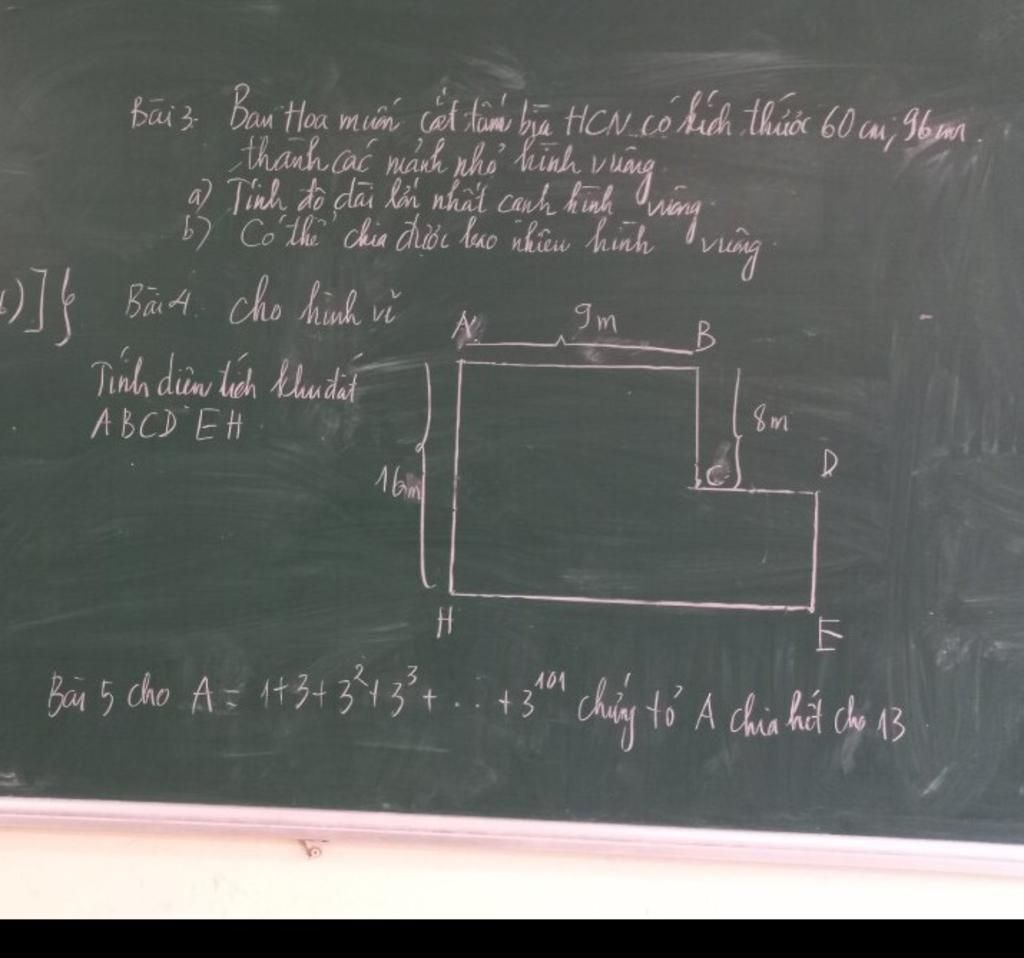 Bài 3. Bạn Hoa muốn cắt tấm bìa HCN có kích thước 60 cm, 96 cm.
thành các mảnh nhỏ hình vuông
a) Tính độ dài lớn nhất cạnh hình vuông
b) Có thể chia được bao nhiêu hình vuông.
)]}
Bài 4. cho hình vẽ
A 9m B
Tính diện tích khu đất
ABCD EH
8m
C D
16m
H E
Bài 5 cho A = 1+3+3²+3³+...+3¹⁰¹ chứng tỏ A chia hết cho 13